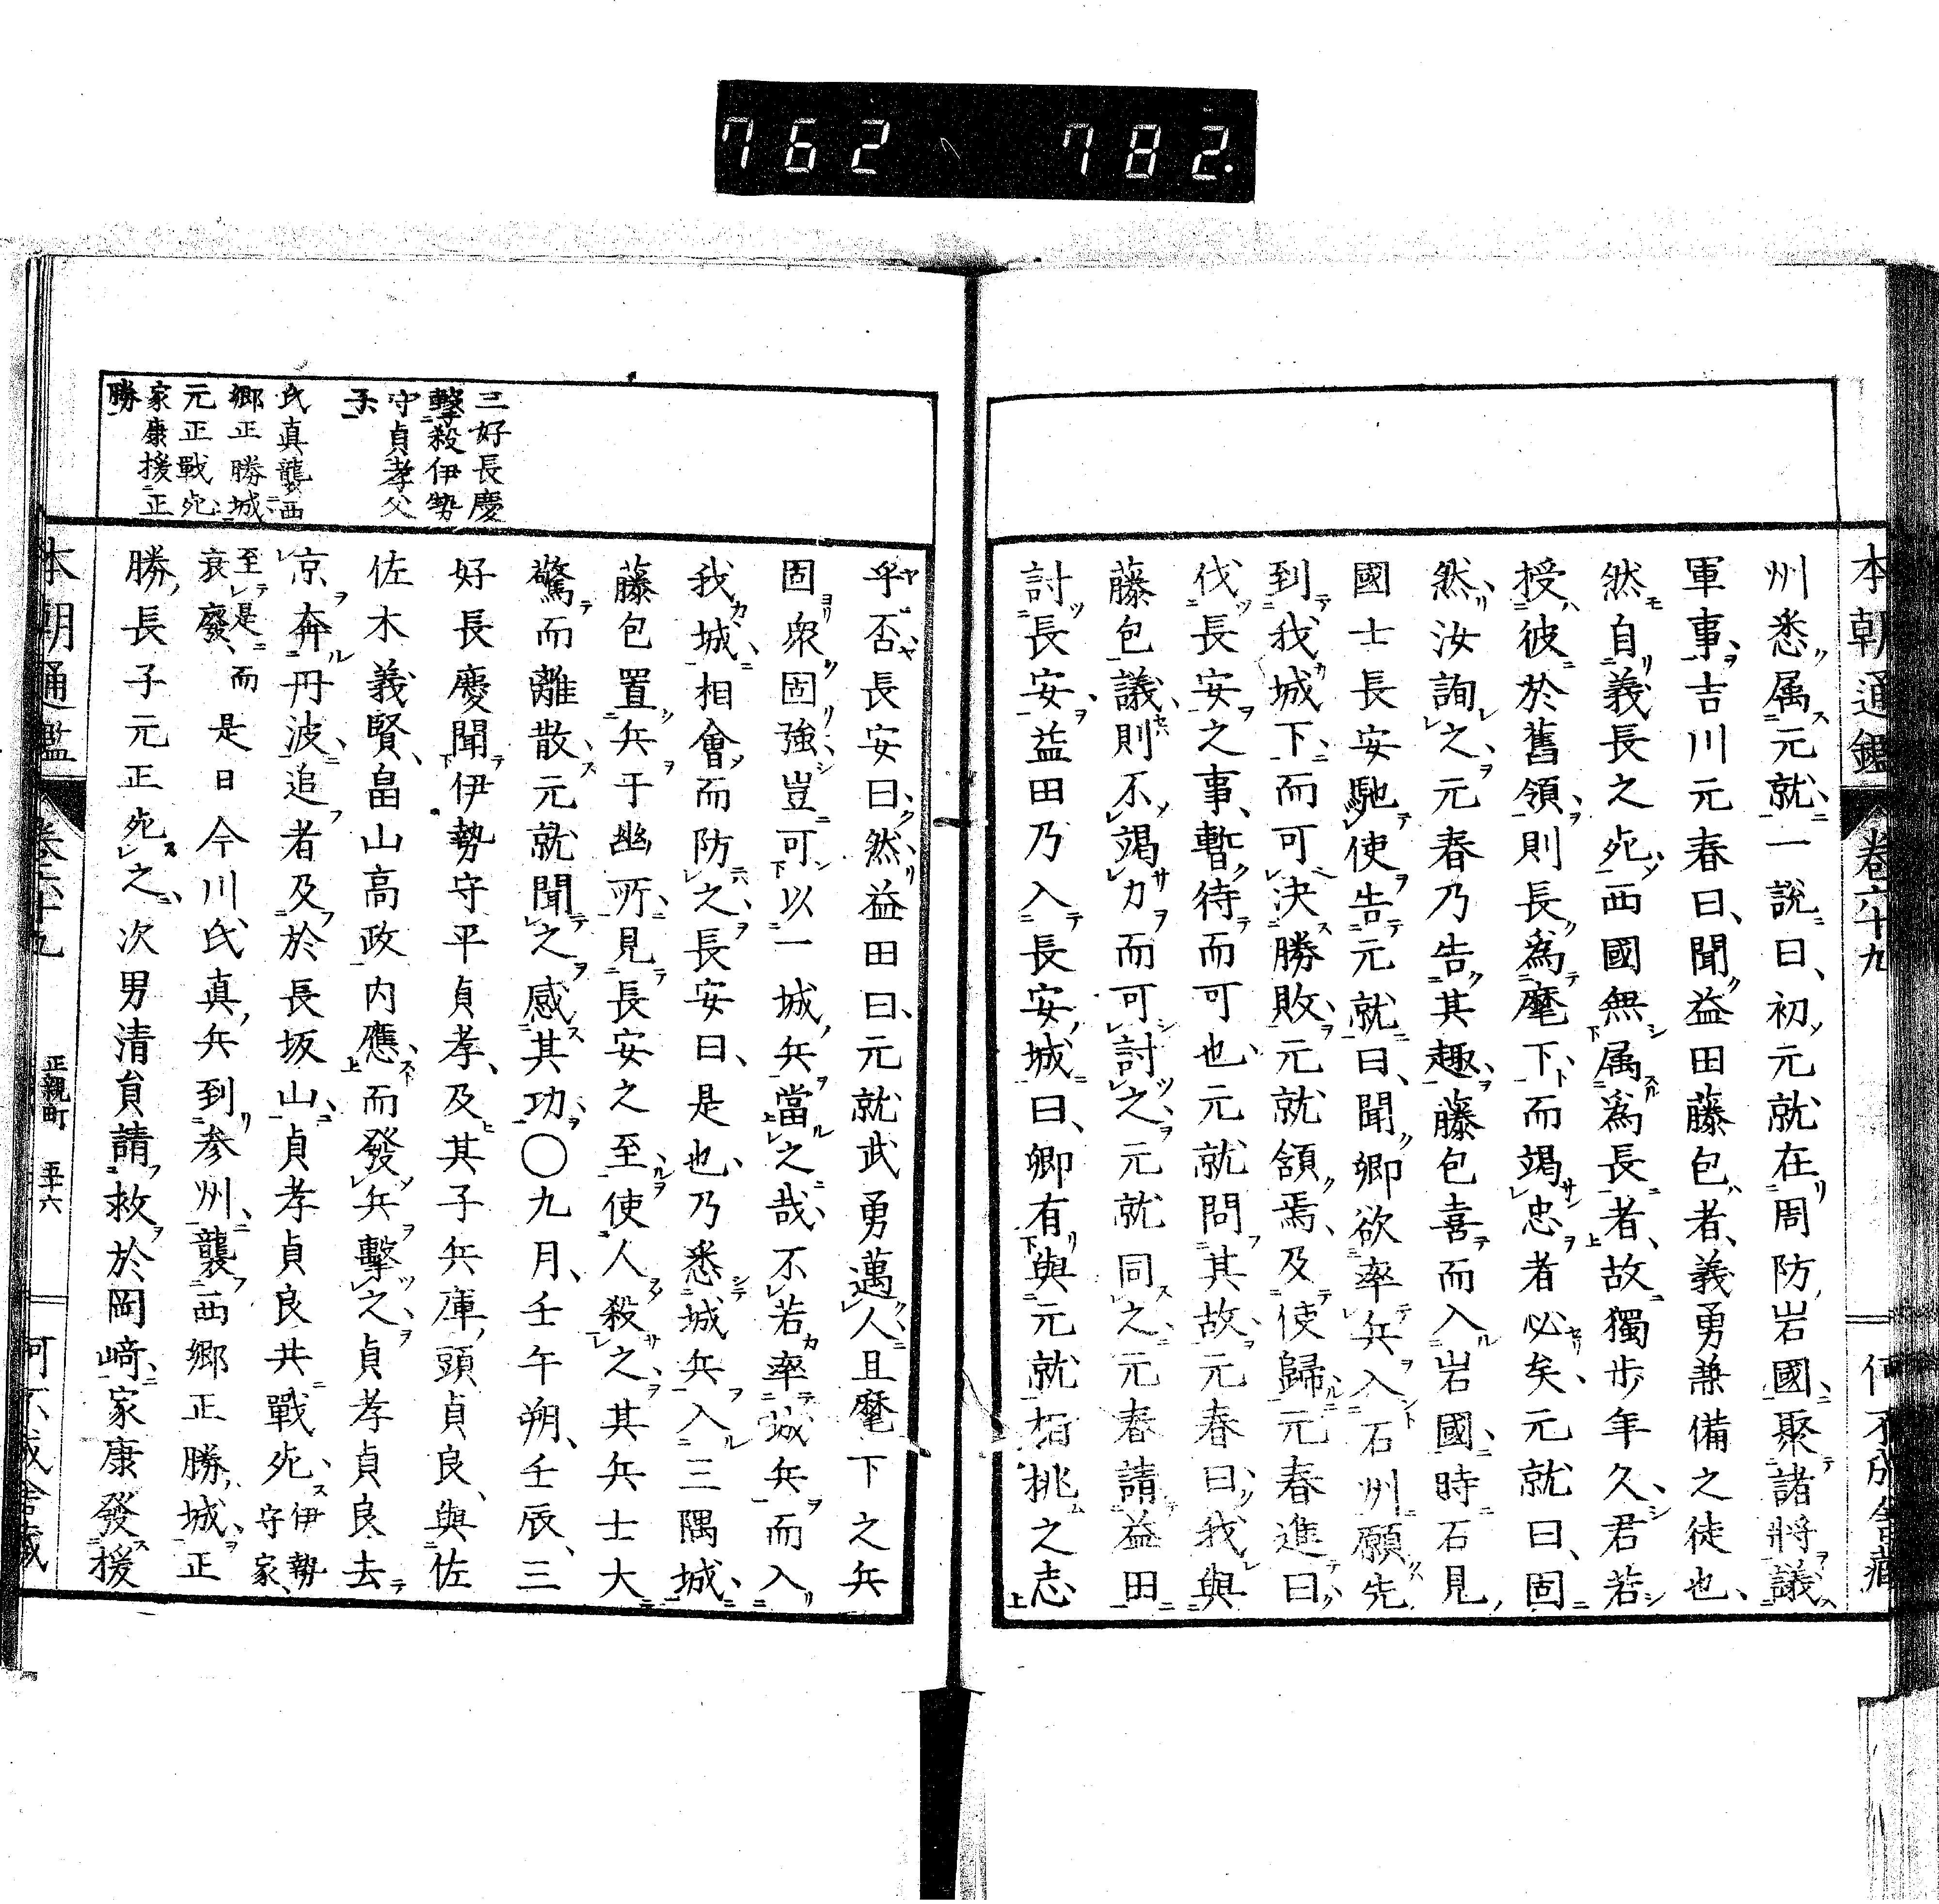 762 782.
本朝通鑑 卷六十九
州悉属元就一說曰初元就在周防岩國聚諸將議
軍事吉川元春曰聞益田藤包者義勇兼備之徒也
然自義長之死西國無属爲長者故獨步年久君若
授彼於舊領則長爲麾下而竭忠者必矣元就曰固
然汝詢之元春乃告其趣藤包喜而入岩國時石見
國士長安馳使告元就曰聞卿欲率兵入石州願先
到我城下而可決勝敗元就頷焉及使歸元春進曰
伐長安之事暫待而可也元就問其故元春曰我與
藤包議則不竭力而可討之元就同之元春請益田
討長安益田乃入長安城曰卿有與元就相挑之志
乎否長安曰然益田曰元就武勇邁人且麾下之兵
固衆固強豈可以一城兵當之哉不若率城兵而入
我城相會而防之長安曰是也乃悉城兵入三隅城
藤包置兵于幽所見長安之至使人殺之其兵士大
驚而離散元就聞之感其功〇九月壬午朔壬辰三
好長慶聞伊勢守平貞孝及其子兵庫頭貞良與佐
佐木義賢畠山高政内應而發兵擊之貞孝貞良去
京奔丹波追者及於長坂山貞孝貞良共戰死伊勢守家
至是而衰廢是日今川氏真兵到参州襲西郷正勝城正
勝長子元正死之次男清員請救於岡﨑家康發援
三好長慶
擊殺伊勢
守貞孝父
子
氏真襲西
郷正勝城
元正戰死
家康援正
勝
本朝通鑑 卷六十九 正親町 五十六